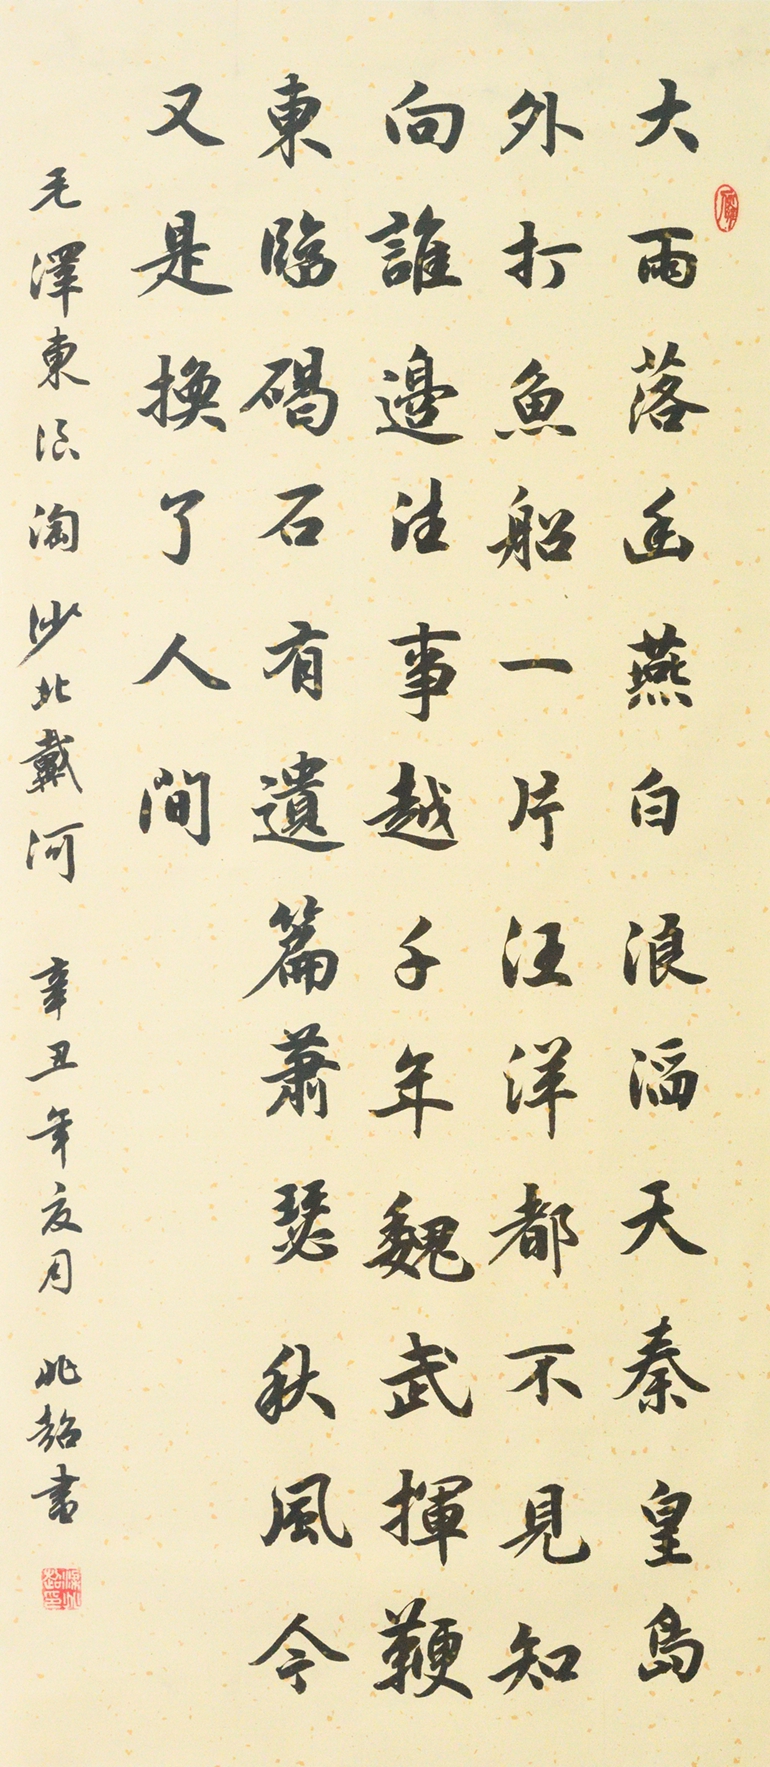 大雨落幽燕白浪滔天秦皇島
外打魚船一片汪洋都不見知
向誰邊往事越千年魏武揮鞭
東臨碣石有遺篇蕭瑟秋風今
又是換了人間
毛澤東浪淘沙北戴河 辛丑年夏月 兆書